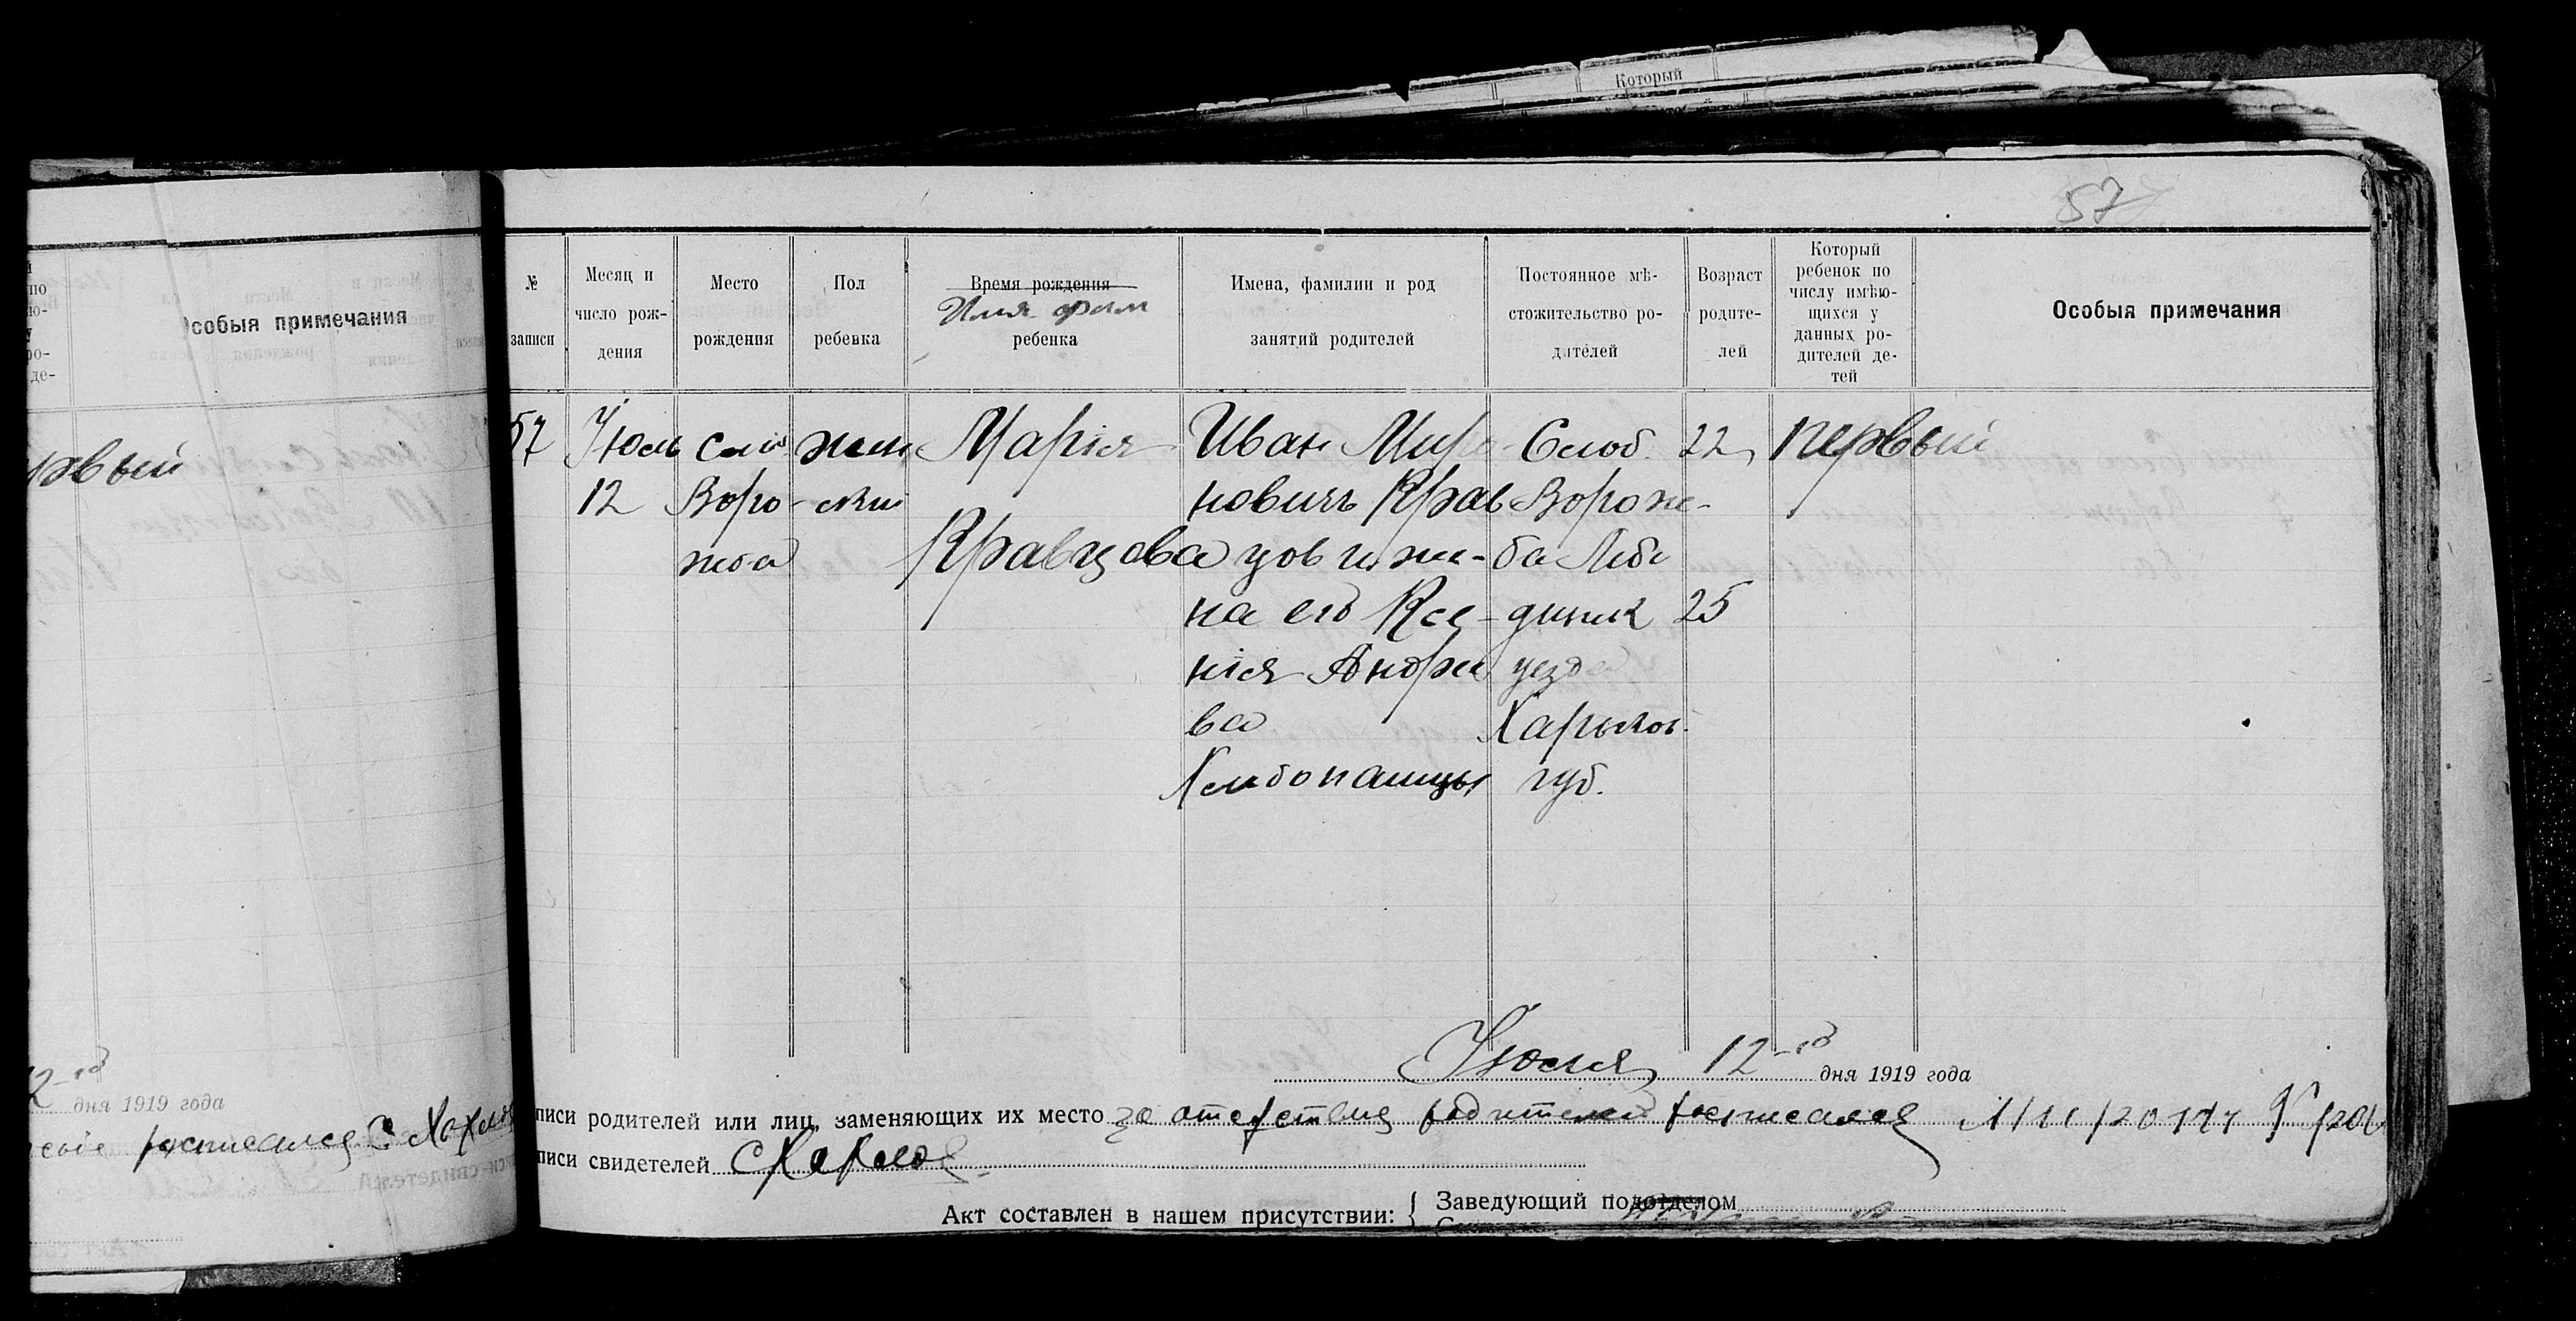 Который
57
Особыя примечания
рвый
дня 1919 года
№
записи
Месяц и
число рож-
дения
Место
рождения
Пол
ребенка
Время рождения
Имя фам
ребенка
Имена, фамилии и род
занятий родителей
Постоянное мѣ-
стожительство ро-
дителей
Возраст
родите-
лей
Который
ребенок по
числу имѣю-
щихся у
данных ро-
дителей де-
тей
Особыя примечания
57
Июль
12
Слоб
Воро-
жба
жен
ский
Марія
Кравцова
Иван Миро-
нович Крав
цов и же-
на его Ксе-
нія Андрее
ва
Хлебопашцы
Слоб.
Ворож-
ба Лебе
динск
уезда
Харьков.
губ.
22
25
первый
Июля 12-го дня 1919 года
писи родителей или лиц, заменяющих их место за отсутствием родителей росписался
писи свидетелей
Акт составлен в нашем присутствии:
Заведующий подотделом